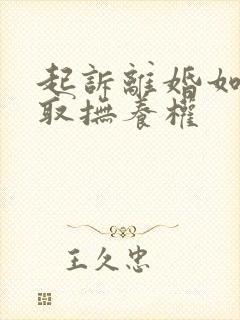 起訴離婚如
取撫養權
王久忠